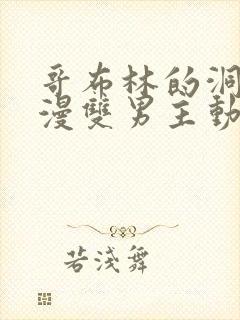 哥布林的洞
漫雙男主動
若淺舞